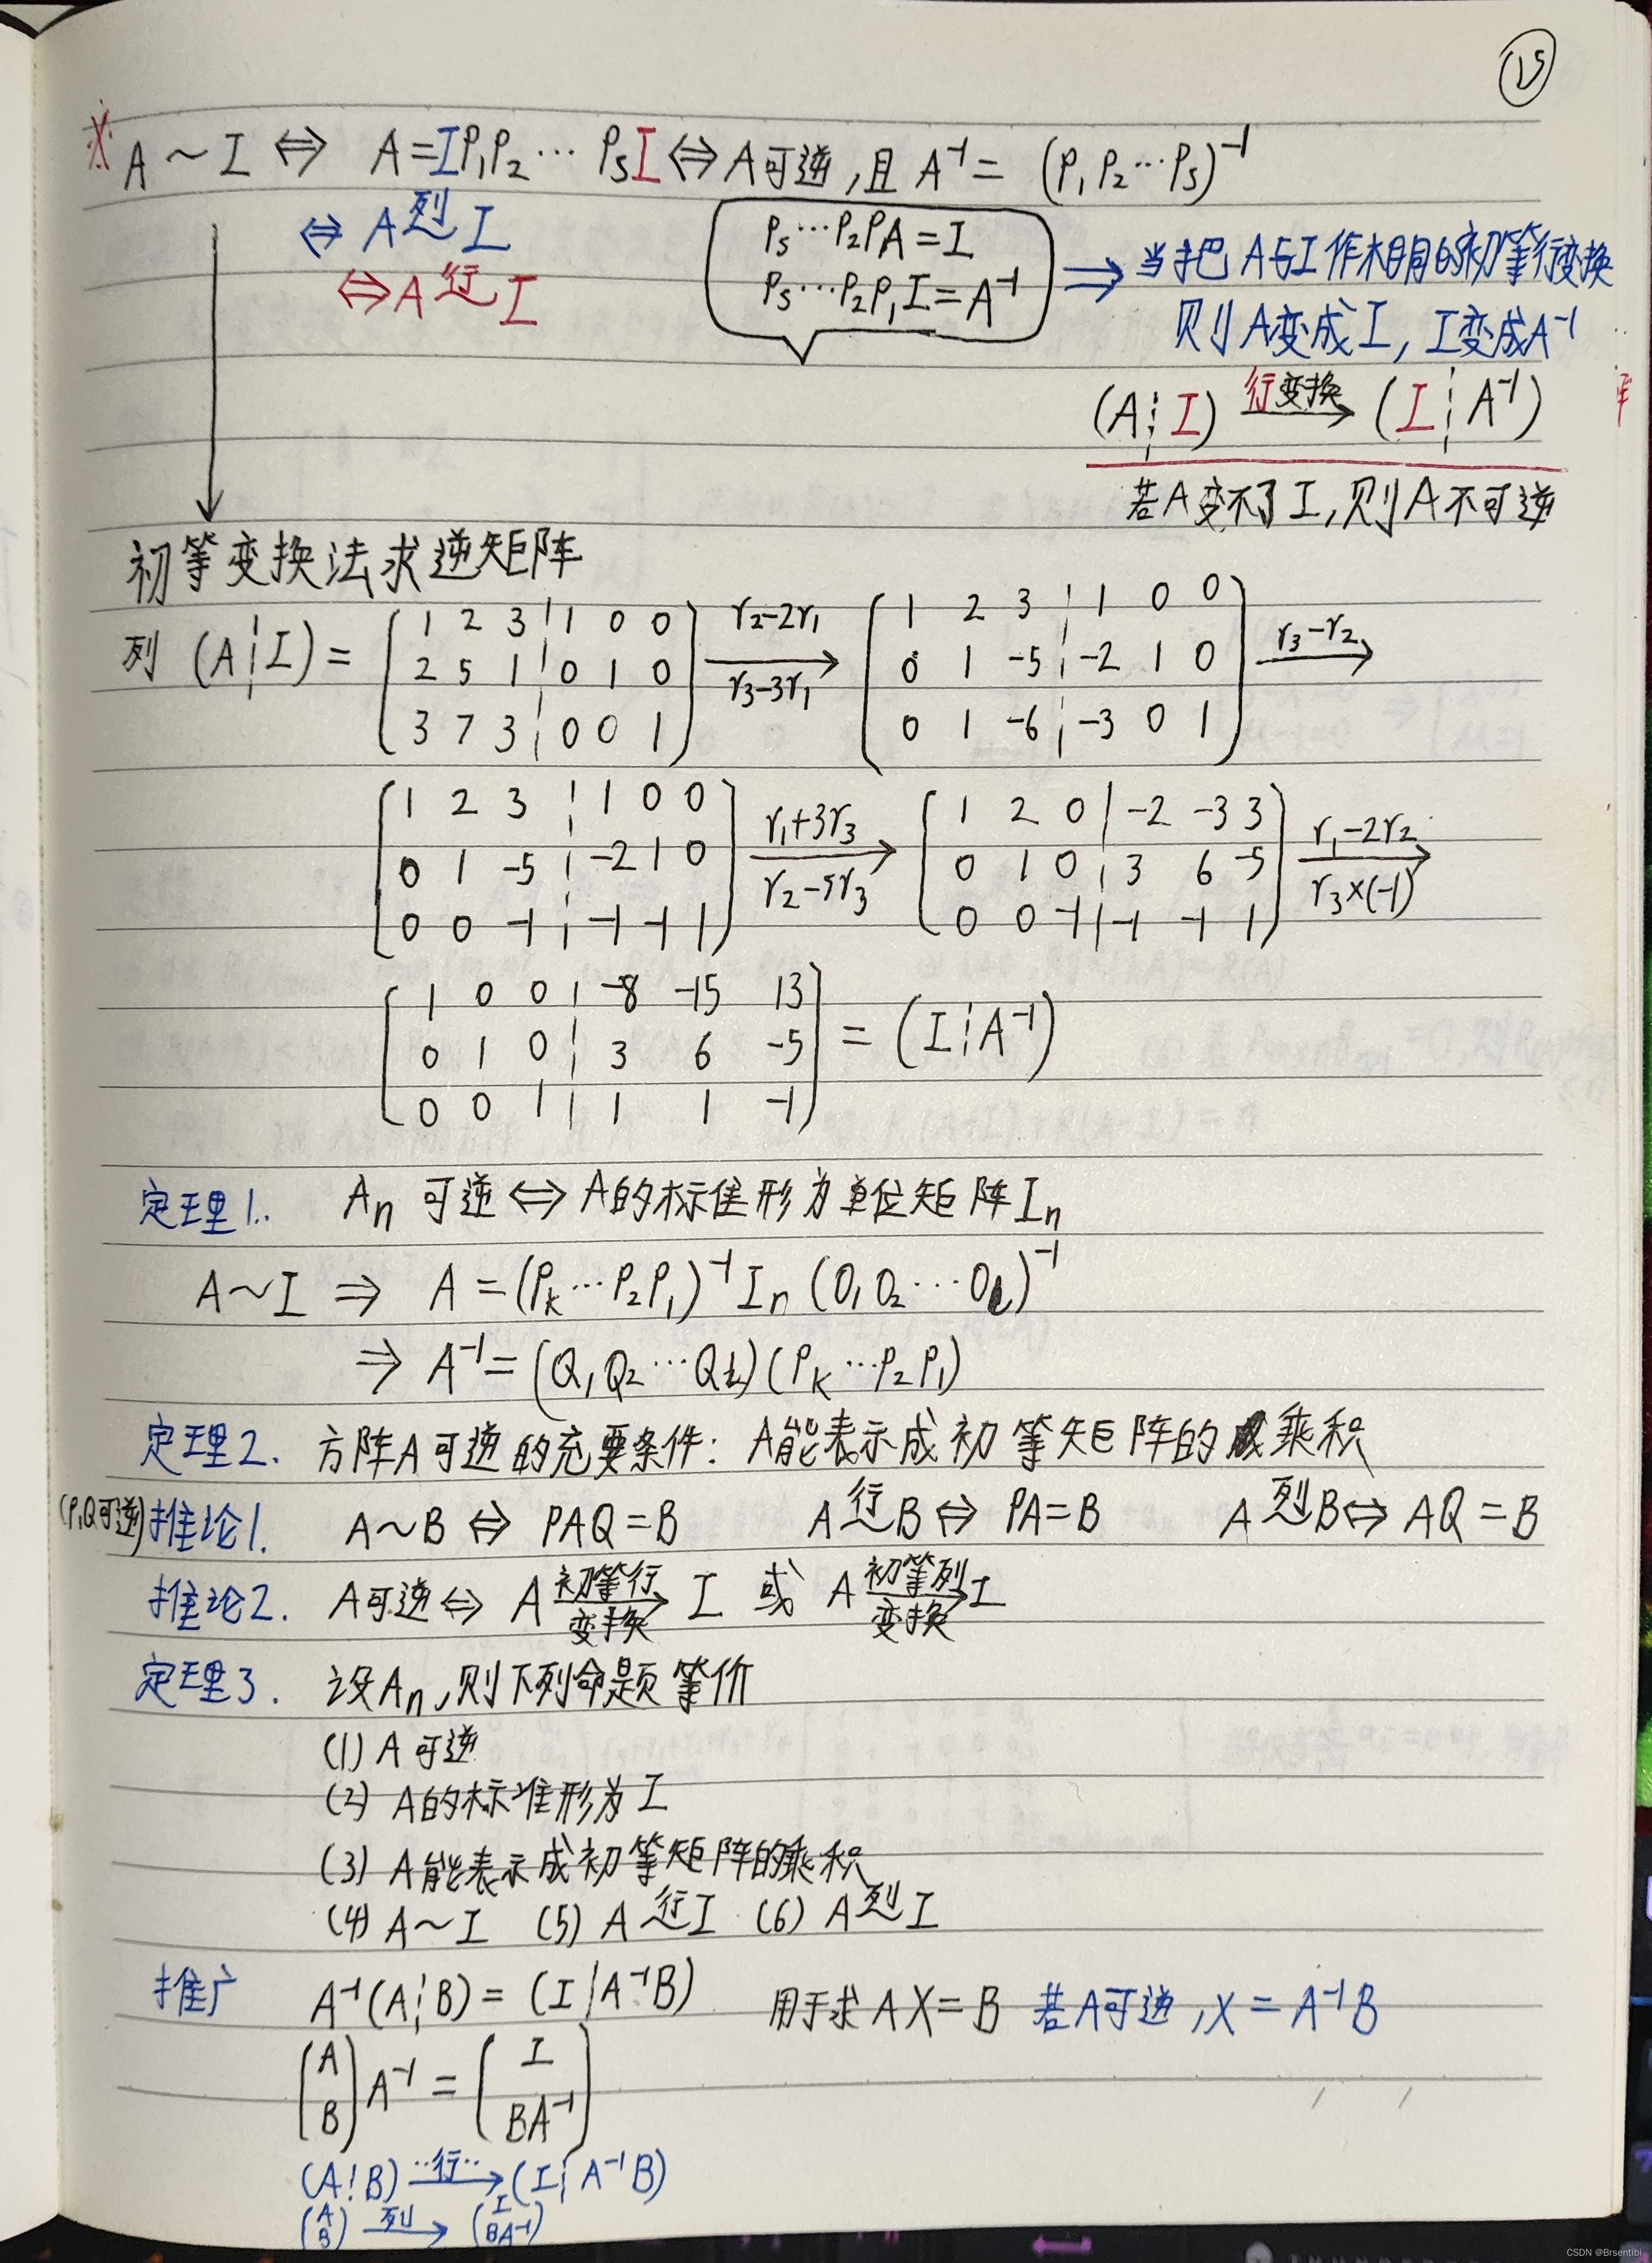 15
※ A ~ I ⇔ A = I P₁P₂ ⋯ Pₛ I ⇔ A可逆, 且 A⁻¹ = (P₁P₂⋯Pₛ)⁻¹
⇔ A 列~ I
⇔ A 行~ I
Pₛ⋯P₂P₁A = I
Pₛ⋯P₂P₁I = A⁻¹
⇒ 当把A与I作相同的初等行变换
则A变成I, I变成A⁻¹
(A ¦ I) 行变换→ (I ¦ A⁻¹)
若A变不了I, 则A不可逆
初等变换法求逆矩阵
列 (A ¦ I) = ( 1 2 3 ¦ 1 0 0 ; 2 5 1 ¦ 0 1 0 ; 3 7 3 ¦ 0 0 1 ) r₂-2r₁ → r₃-3r₁ ( 1 2 3 ¦ 1 0 0 ; 0 1 -5 ¦ -2 1 0 ; 0 1 -6 ¦ -3 0 1 ) r₃-r₂ →
( 1 2 3 ¦ 1 0 0 ; 0 1 -5 ¦ -2 1 0 ; 0 0 -1 ¦ -1 -1 1 ) r₁+3r₃ → r₂-5r₃ ( 1 2 0 | -2 -3 3 ; 0 1 0 ¦ 3 6 -5 ; 0 0 -1 | -1 -1 1 ) r₁-2r₂ → r₃×(-1)
( 1 0 0 ¦ -8 -15 13 ; 0 1 0 ¦ 3 6 -5 ; 0 0 1 ¦ 1 1 -1 ) = (I ¦ A⁻¹)
定理1. Aₙ 可逆 ⇔ A的标准形为单位矩阵Iₙ
A~I ⇒ A = (Pₖ⋯P₂P₁)⁻¹ Iₙ (Q₁Q₂⋯Qₜ)⁻¹
⇒ A⁻¹ = (Q₁Q₂⋯Qₜ)(Pₖ⋯P₂P₁)
定理2. 方阵A可逆的充要条件: A能表示成初等矩阵的乘积
(P,Q可逆) 推论1. A~B ⇔ PAQ = B A 行~ B ⇔ PA = B A 列~ B ⇔ AQ = B
推论2. A可逆 ⇔ A 初等行变换→ I 或 A 初等列变换→ I
定理3. 设Aₙ, 则下列命题等价
(1) A可逆
(2) A的标准形为I
(3) A能表示成初等矩阵的乘积
(4) A~I (5) A 行~ I (6) A 列~ I
推广 A⁻¹(A ¦ B) = (I | A⁻¹B) 用于求 AX = B 若A可逆, X = A⁻¹B
( A ; B ) A⁻¹ = ( I ; BA⁻¹ )
(A ¦ B) ··行··→ (I ¦ A⁻¹B)
( A ; B ) 列→ ( I ; BA⁻¹ )
CSDN @Brsentibi